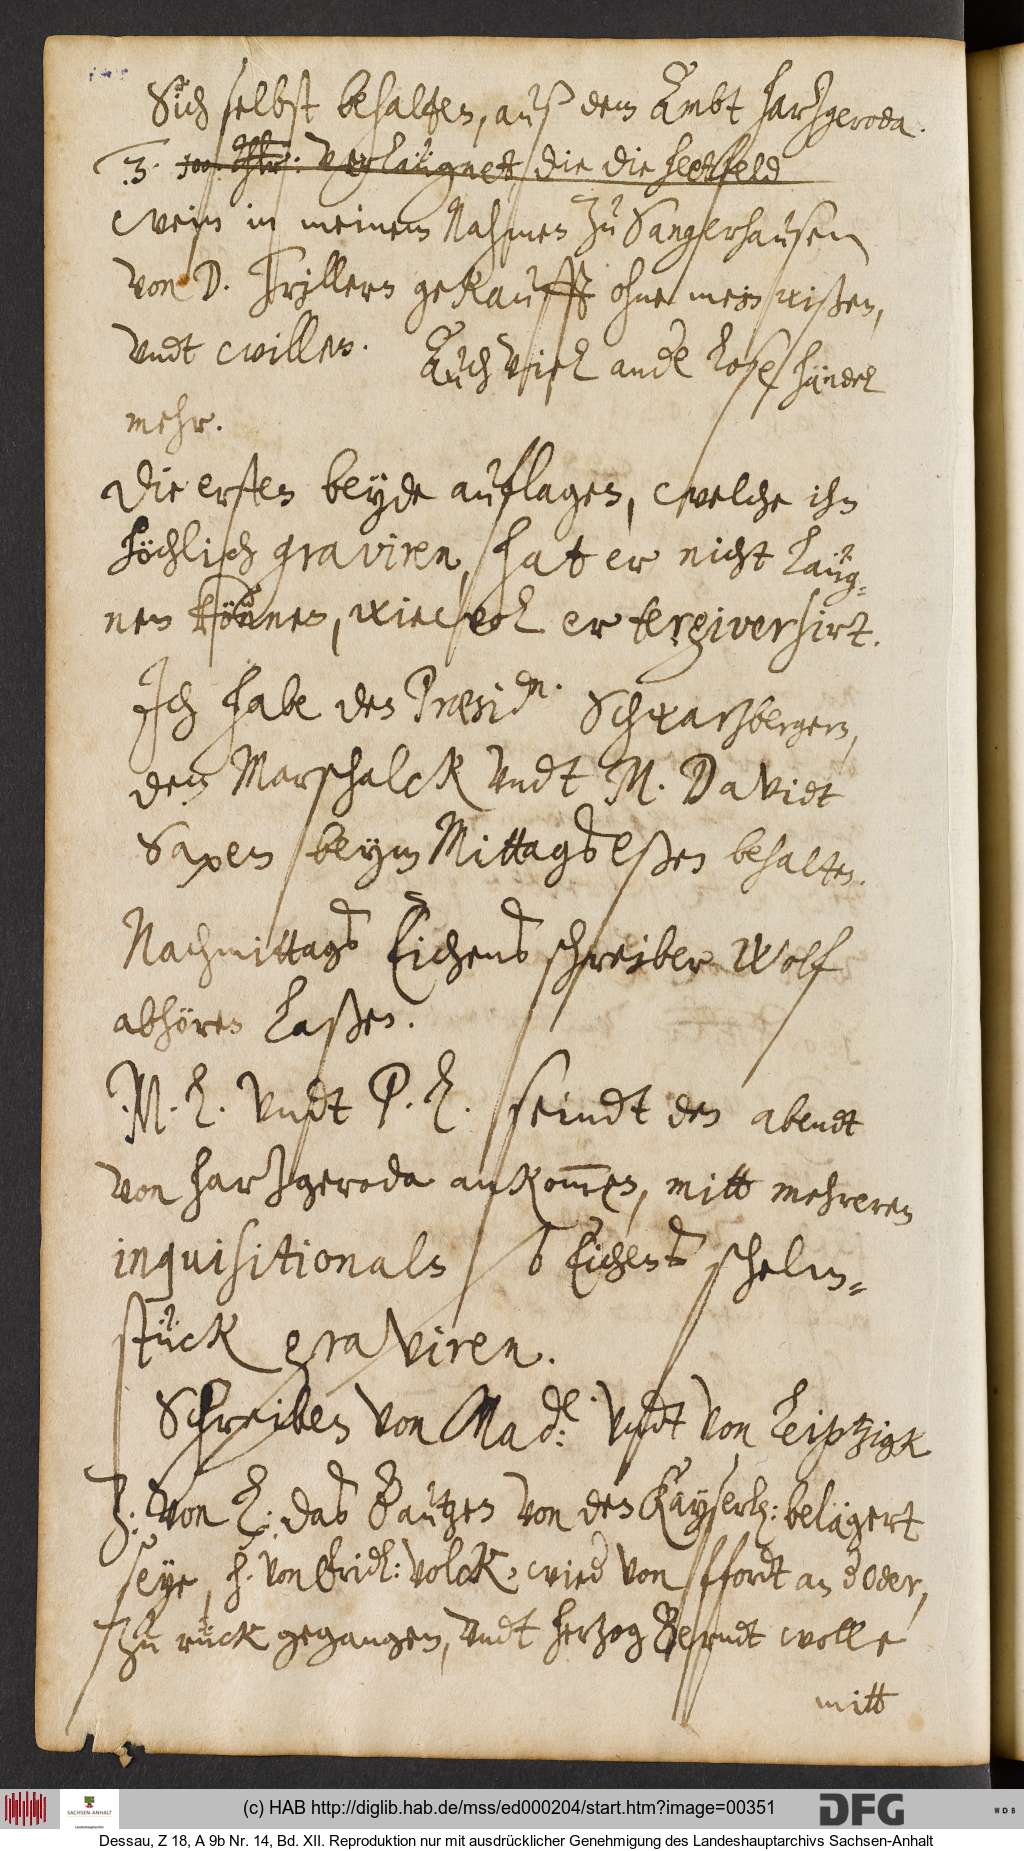 Sich selbst behalten, auß dem Ambt Hartzgeroda.
3. 100 Thlr: verlaügnet, die die Hectfeld
wein in meinem Nahmen zu Sangerhausen
von D. Trillern gekaufft ohne mein wißen,
undt willen. Auch viel ande lose händel
mehr.
Die ersten beyde auflagen, welche ihn
höchlich graviren, hat er nicht laüg=
nen können, wiewol er tergiversirt.
Ich habe den Præsiden. Schwartzbergern,
den Marschalck undt M. Davidt
Saxen beym Mittagseßen behalten.
Nachmittags Eichens schreiber Wolf
abhören laßen.
M. L. undt P. L. seindt den abendt
von Hartzgeroda ankom̄en, mitt mehreren
inquisitionaln so Eichens schelm=
stück graviren.
Schreiben von Mad: undt von Leiptzigk
Z: von L: das Bautzen von den Kayserl: belägert
seye, H. von Fridl: volck, wied von ffordt an d Oder,
zu rück gegangen, undt Herzog Berndt wolle
mitt
(c) HAB http://diglib.hab.de/mss/ed000204/start.htm?image=00351
SACHSEN-ANHALT
DFG
WDB
Dessau, Z 18, A 9b Nr. 14, Bd. XII. Reproduktion nur mit ausdrücklicher Genehmigung des Landeshauptarchivs Sachsen-Anhalt